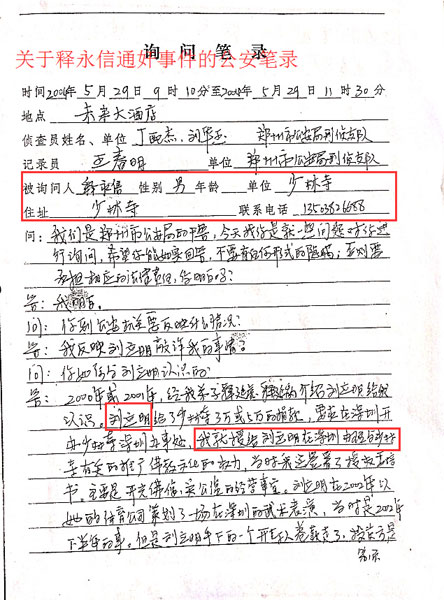 询问笔录
关于释永信通奸事件的公安笔录
时间2004年5月29日9时10分至2004年5月29日11时30分
地点 未来大酒店
侦查员姓名、单位 丁 杰、刘 郑州市公安局刑侦支队
记录员 王春明 单位 郑州市公安局刑侦支队
被询问人 释永信 性别 男 年龄 单位 少林寺
住址 少林寺 联系电话
问：我们是郑州市公安局的干警，今天找你是就一些问题对你进
行询问，希望你能如实回答，不要有任何形式的隐瞒；否则要
承担相应的法律责任，你明白吗？
答：我明白。
问：你到公安机关要反映什么情况？
答：我反映刘立明敲诈我的事情？
问：你如何与刘立明认识的？
答：2000年或2001年，经我弟子释延 介绍刘立明给我
认识。刘立明给少林寺3万或5万的捐款，要求在深圳开
办少林寺深圳办事处，我就 刘立明在深圳 与少林
寺有关的推广佛教文化的 ，当时我还签署了授权委托
书。主要是开光佛像、实公益的经营事宜。刘立明在2002年以
她的体育公司策划了一场在深圳的武术表演，当时是2002年
下半年的事。但是刘立明手下的一个 以卷款走了，